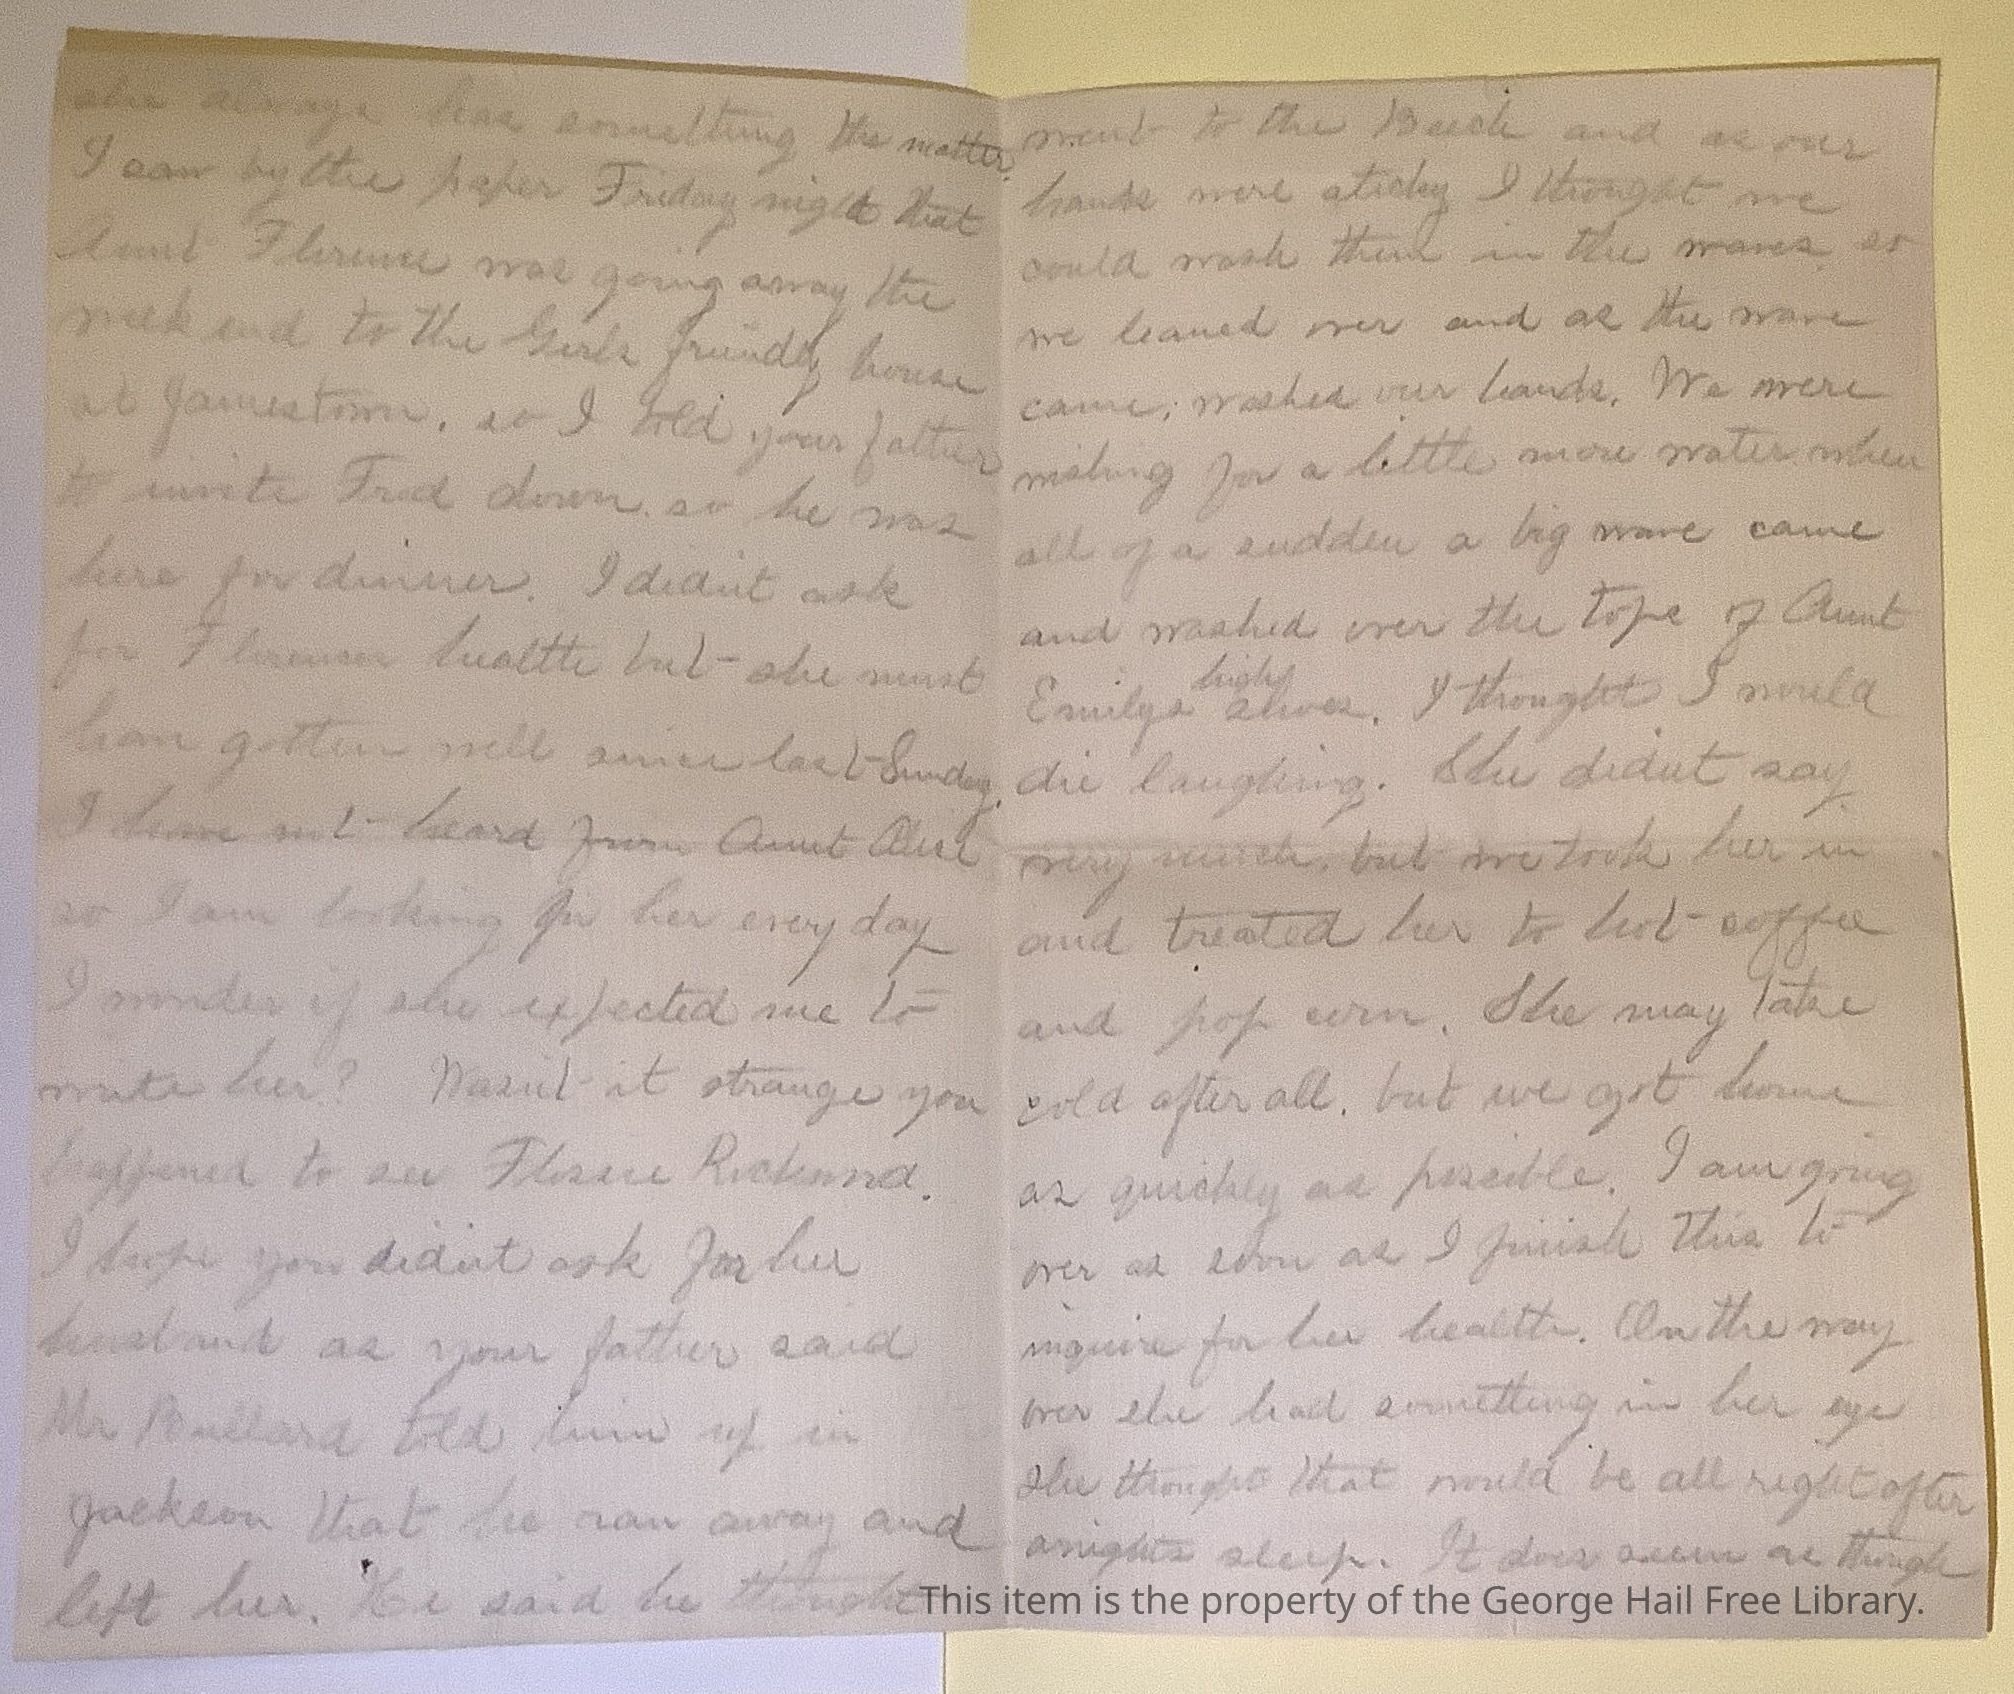 she always has something the matter.
I saw by the paper Friday night that
Aunt Florence was going away the
week end to the Girls friendly house
at Jamestown, so I told your father
to invite Fred down. so he was
here for dinner. I didn't ask
for Florences health but she must
have gotten well since last Sunday.
I have not heard from Aunt Alice
so I am looking for her every day
I wonder if she expected me to
write her? Wasn't it strange you
happened to see Flossie
I hope you didn't ask for her
husband as your father said
Mr Bullard told him up in
Jackson that he ran away and
left her. He said he thought
went to the Beach and as our
hands were sticky I thought we
could wash them in the waves. so
we leaned over and as the wave
came, washed our hands. We were
wishing for a little more water when
all of a sudden a big wave came
and washed over the tops of Aunt
Emilys high shoes. I thought I would
die laughing. She didn't say
very much, but we took her in
and treated her to hot coffee
and pop corn. She may take
cold after all, but we got home
as quickly as possible. I am going
over as soon as I finish this to
inquire for her health. On the way
over she had something in her eye
she thought that would be all right after
a nights sleep. It does seem as though
This item is the property of the George Hail Free Library.